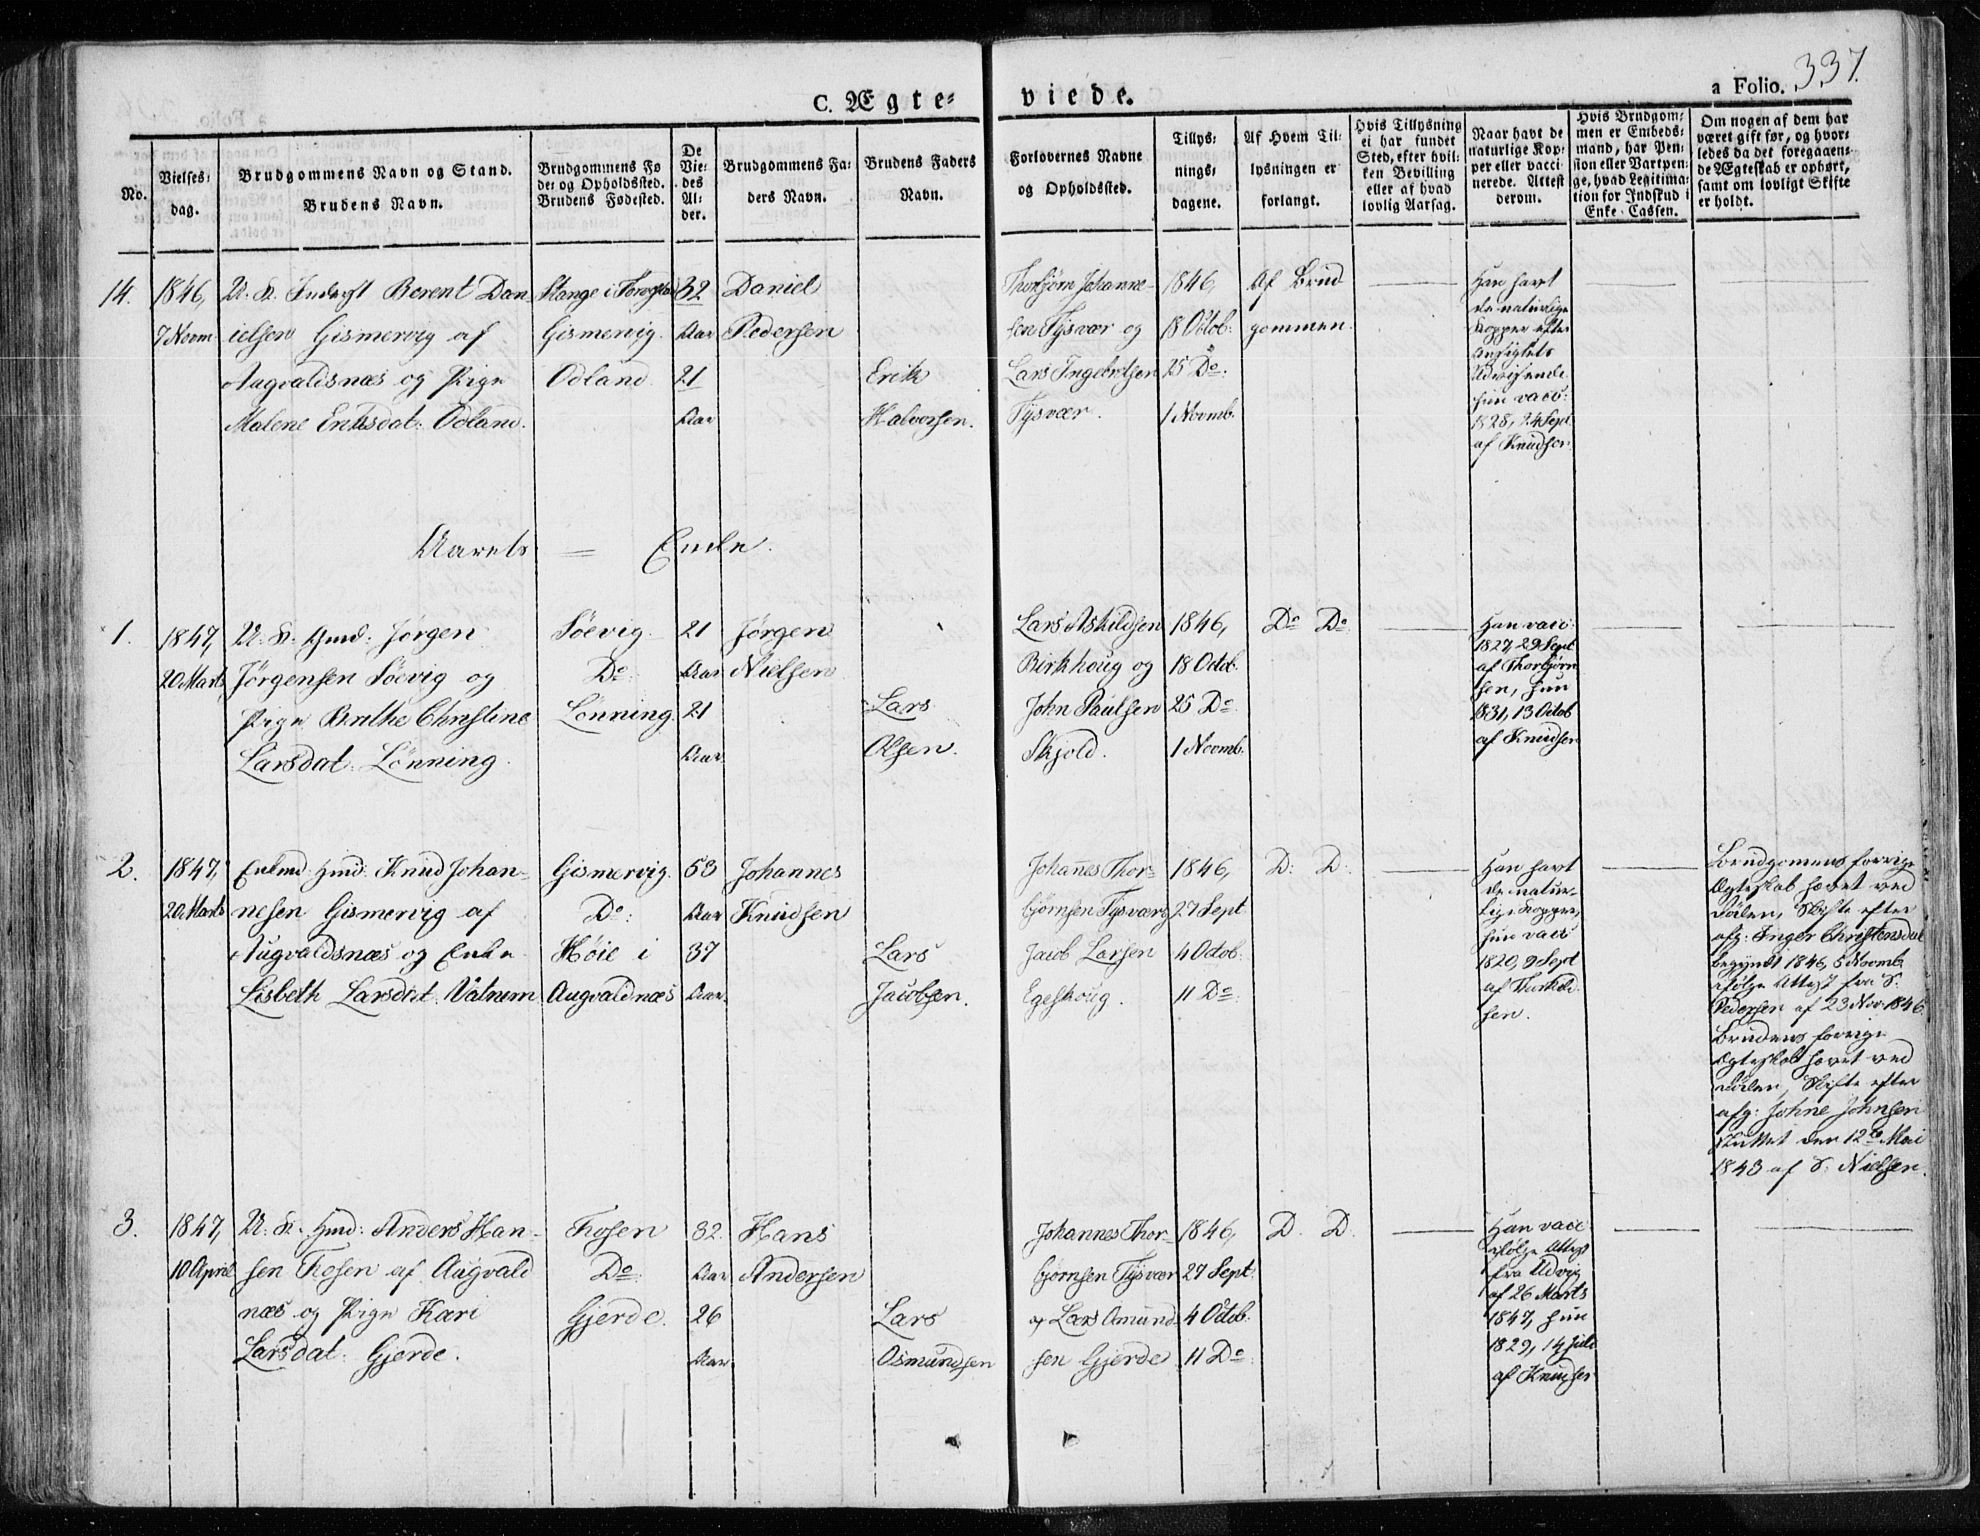 C. Ægte-
viede.
a Folio. 337.
No.
Vielses-
dag.
Brudgommens Navn og Stand.
Brudens Navn.
Brudgommens Fø
de- og Opholdssted.
Brudens Fødested.
De
Vie-
des
Al-
der.
Brudgommens Fa-
ders Navn.
Brudens Faders
Navn.
Forlovernes Navne
og Opholdssted.
Tillys-
nings-
dagene.
Af Hvem Til-
lysningen er
forlangt.
Hvis Tillysning
ei har fundet
Sted, efter hvil-
ken Bevilling
eller af hvad
lovlig Aarsag.
Naar havt de
naturlige Kop-
per eller vacci-
nerede. Attest
derom.
Hvis Brudgom-
men er Embeds-
mand, har Pen-
sion eller Vartpen-
ge, hvad Legitima-
tion for Indskud i
Enke-Cassen.
Om nogen af dem har
været gift før, og hvor-
ledes da det foregaaen-
de Ægteskab er ophørt,
samt om lovligt Skifte
er holdt.
14.
1846,
7 Novm
U. K. Inderst Berent Dan
ielsen Gismervig af
Augvaldsnæs og Pige
Malene Eriksdat: Ødland.
Stange i
Gismervig.
Ødland
32
Aar
21
Aar
Daniel
Pedersen
Erik
Halvorsen.
Thorbjørn Johanne-
sen Tysvær og
Lars Ingebretsen
Tysvær.
1846,
18 Octob:
25 Do.
1 Novmb.
Af Brud
gommen.
Han havt
de naturlige
Kopper efter
Ansigtets
Udvisende
hun vacc:
1828, 24 Sept
af Knudsen
Aarets = Ende.
1.
1847,
20 Marts
U. K. Gmd: Jørgen
Jørgensen Søevig og
Pige Brithe Christine
Larsdat: Lønning.
Søevig.
Do:
Lønning.
21
Aar
21
Aar
Jørgen
Nielsen
Lars
Olsen.
Lars Askildsen
Birkhoug og
John Paulsen
Skjold.
1846,
18 Octob.
25 Do.
1 Novmb.
Do Do
Han vacc:
1827, 29 Sept
af Thorbjørn
sen, hun
1831, 13 Octob
af Knudsen
2.
1847,
20 Marts
Enkemd: Gmd: Knud Johan-
nesen Gismervig af
Augvaldsnæs og Enke
Lisbeth Larsdat: Vatnem
Gismervig.
Do:
Høie i
Augvaldnæs
53
Aar
37
Aar
Johannes
Knudsen
Lars
Jacobsen.
Johannes Thor-
bjørnsen Tysvær og
Jacob Larsen
Egeskoug.
1846,
27 Sept
4 Octob:
11 Do:
D: D:
Han havt
de natur-
lige Kopper,
hun vacc
1820, 9 Sept
af Thorkild
sen.
Brudgomens forrige
Ægteskab hævet ved
Døden, Skifte efter
afg: Inger Christensdat
begyndt 1846, 5 Novmb
ifølge Attest fra S.
Pedersen af 23 Nov. 1846.
Brudens forrige
Ægteskab hævet ved
Døden, Skifte efter
afg: Johne Johnsen
sluttet den 12te Mai
1843 af S. Nielsen.
3.
1847,
10 April
U. K. Gmd: Anders Han-
sen Fosen af Augvald
næs og Pige Kari
Larsdat: Gjerde.
Fosen
Do:
Gjerde.
32
Aar
26
Aar
Hans
Andersen
Lars
Osmundsen
Johannes Thor-
bjørnsen Tysvær
og Lars Amund-
sen Gjerde
1846,
27 Sept.
4 Octob.
11 Do:
D. D.
Han vacc
ifølge Attest
fra Udvig
af 26 Marts
1847, hun
1829, 14 Juli
af Knudsen